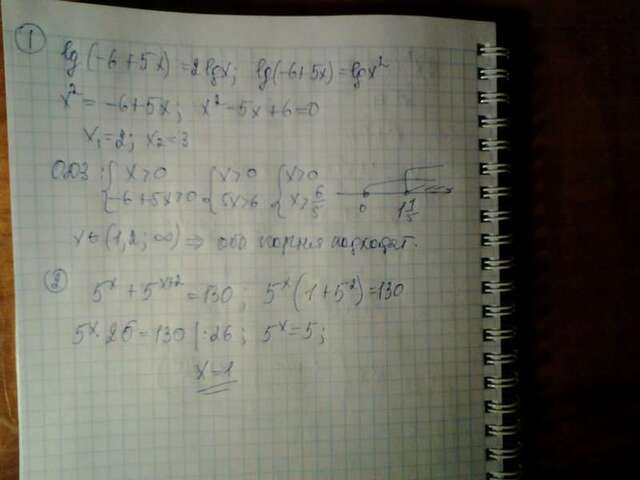 1
lg(-6+5x)=2lgx; lg(-6+5x)=lgx²
x²=-6+5x; x²-5x+6=0
x₁=2; x₂=3
ОДЗ: {x>0 {x>0 {x>0
{-6+5x>0 {5x>6 {x>6/5 0 1 1/5
x∈(1,2;∞) ⇒ оба корня подходят.
2
5ˣ+5ˣ⁺²=130; 5ˣ(1+5²)=130
5ˣ·26=130 |:26; 5ˣ=5;
x=1